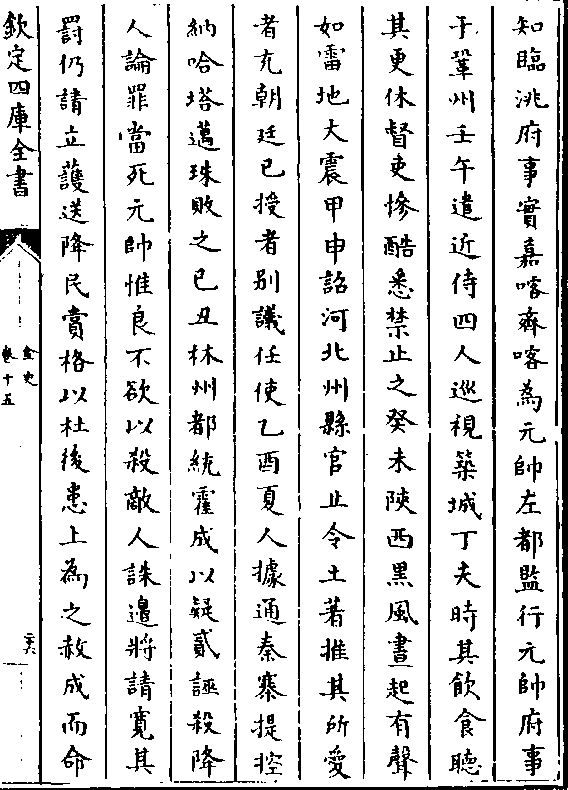 知臨洮府事實嘉喀齊喀為元帥左都監行元帥府事
于鞏州壬午遣近侍四人巡視築城丁夫時其飲食聽
其更休督吏慘酷悉禁止之癸未陝西黑風晝起有聲
如雷地大震甲申詔河北州縣官止令土著推其所愛
者充朝廷已授者别議任使乙酉夏人據通秦寨提控
納哈塔邁珠敗之已丑林州都統霍成以疑貳誣殺降
人論罪當死元帥惟良不欲以殺敵人誅邉將請寛其
罰仍請立䕶送降民賞格以杜後患上為之赦成而命
欽定四庫全書
金史
卷十五
二六